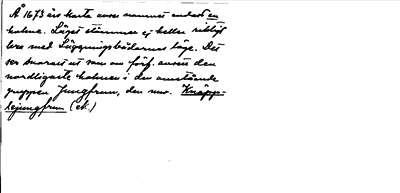 Å 1673 års karta avses namnet endast en
holme. Läget stämmer ej heller riktigt
bra med Läggningsbådarnas läge. Det
ser snarast ut som om förf. avsett den
nordligaste holmen i den omstående
gruppen Jungfrun, den nuv. Knäpp-
lejungfrun (ek.)